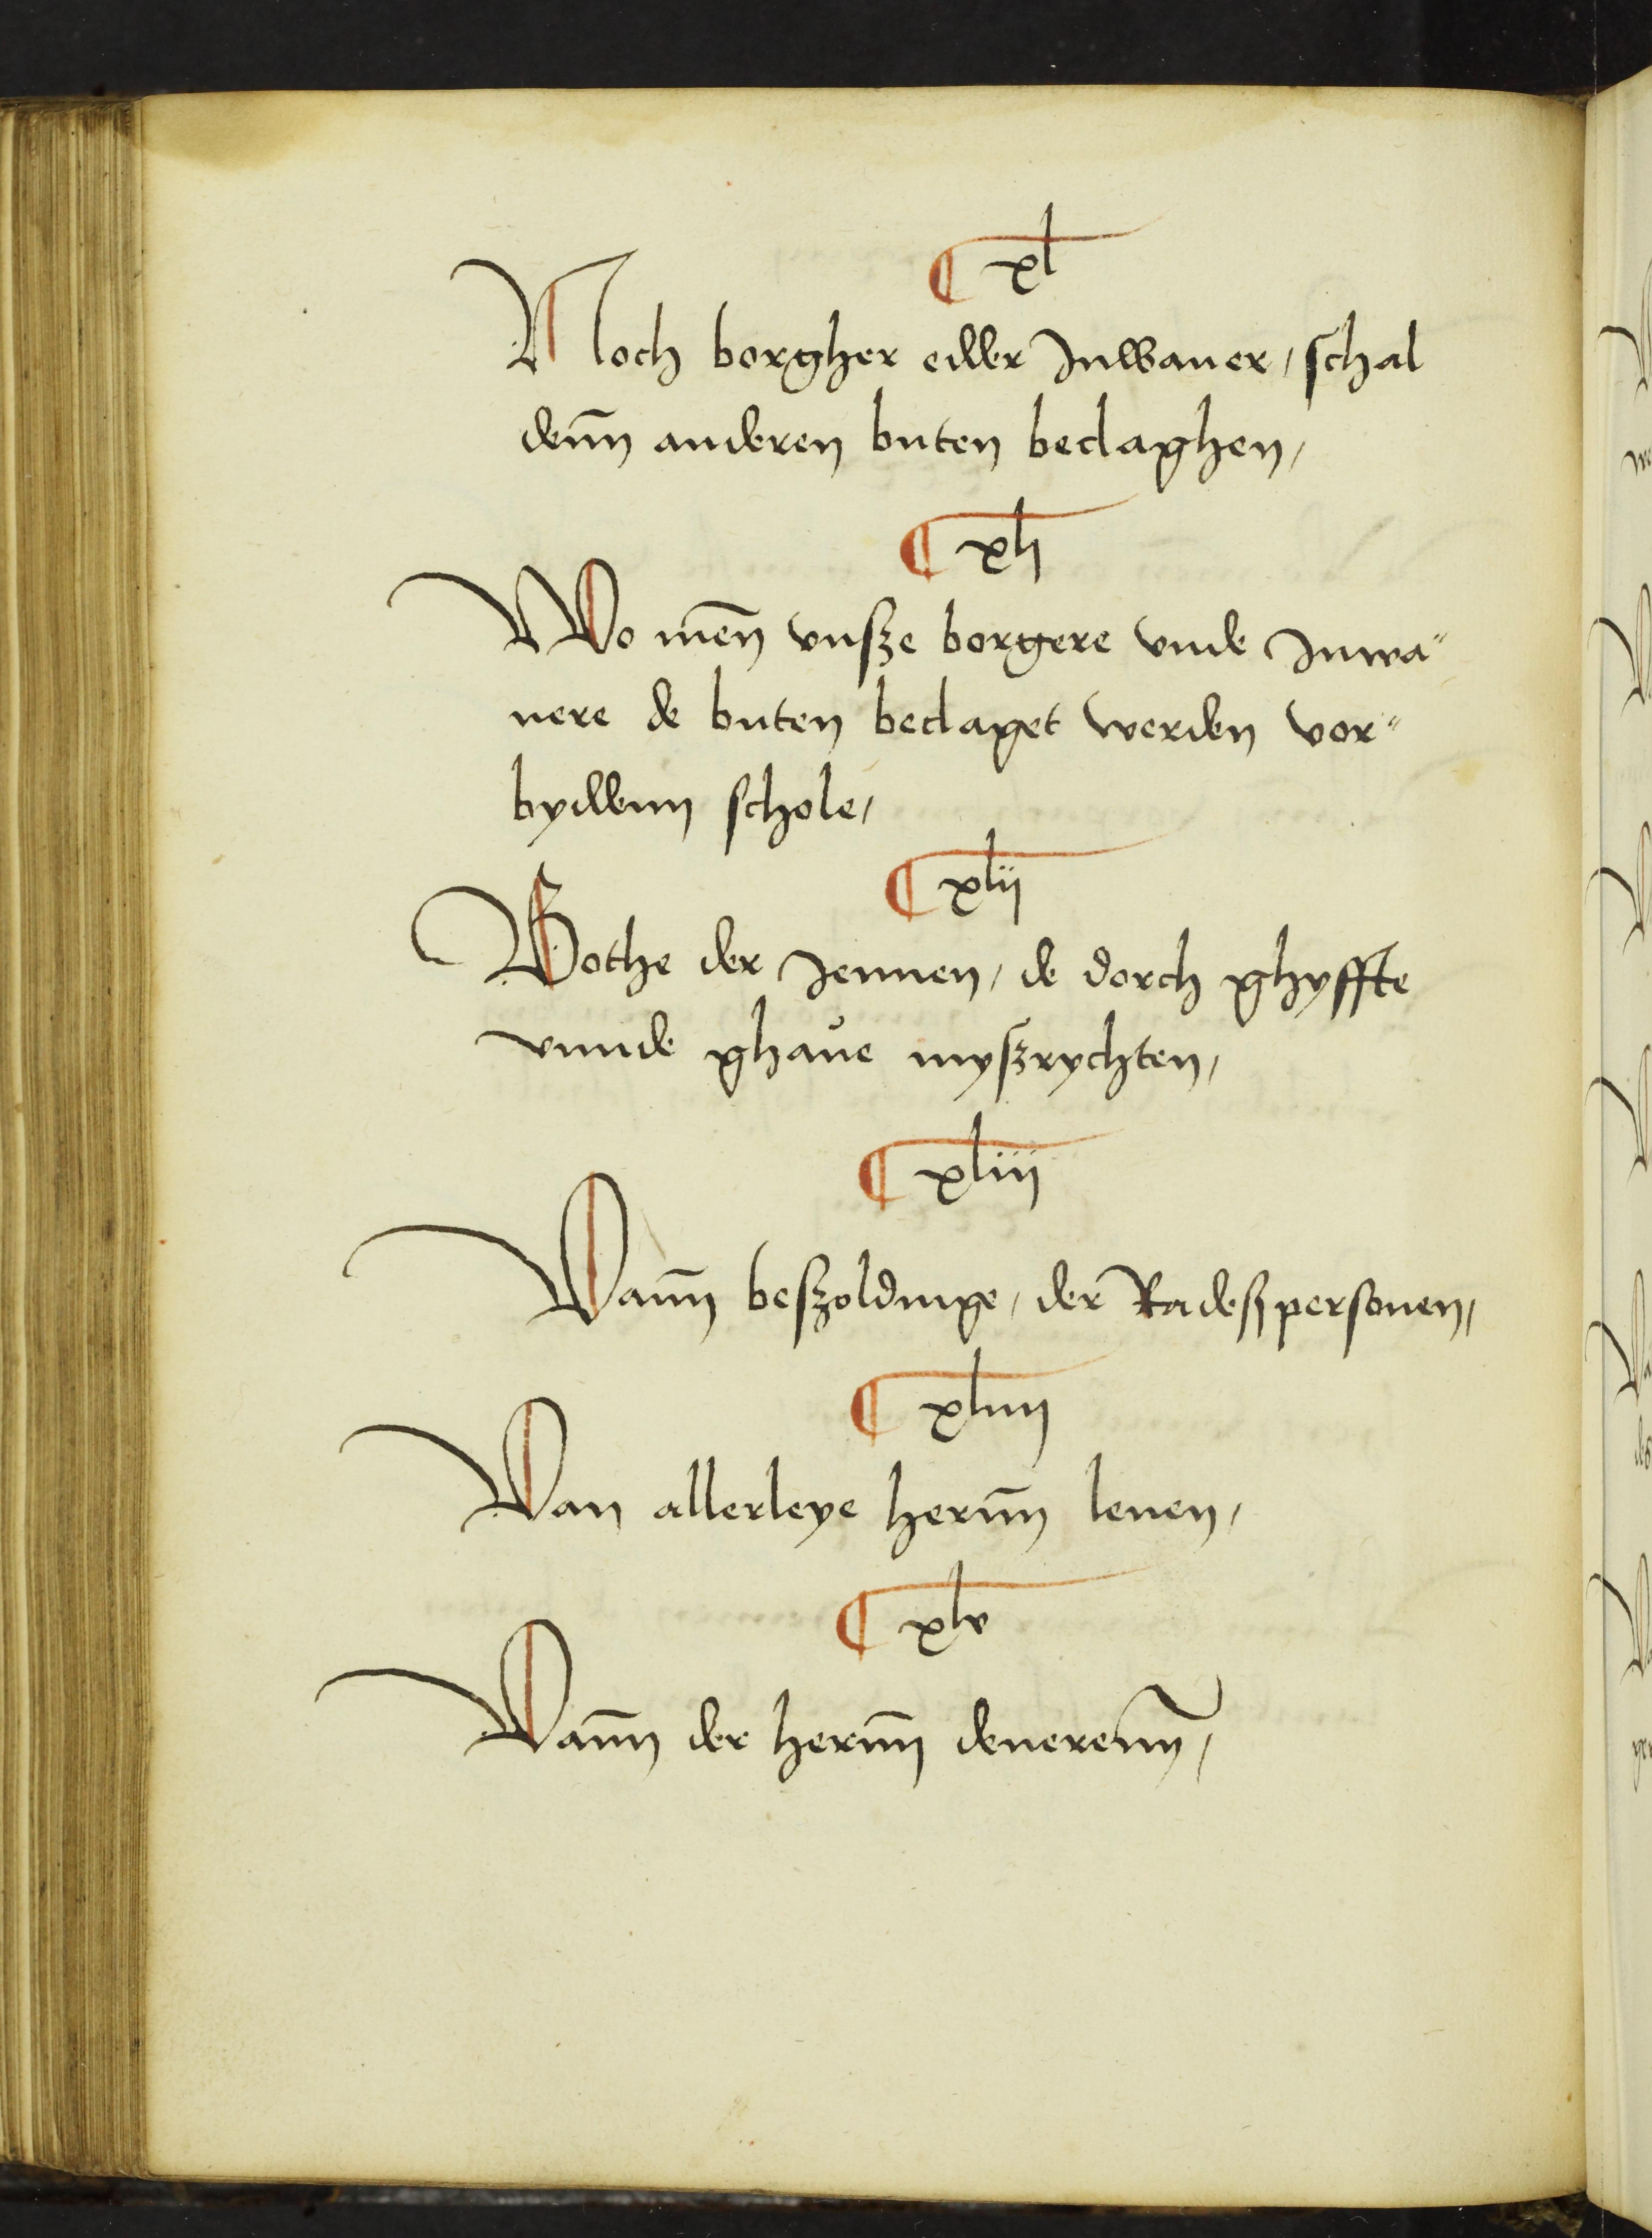 ¶ xl
Noch borgher edder Inwaner, schal
denn̄ anderen buten beclaghen,
¶ xli
Wo men̄ vnsze borgere vnde Inwa"
nere de buten beclaget werden vor"
byddenn schole,
¶ xlii
Bothe der Jennen, de dorch ghyffte
vnnde ghaue myszrychten,
¶ xliii
Vann̄ beszoldinge, der Radeszpersonen,
¶ xliiii
Van allerleye hernn̄ lenen,
¶ xlv
Vann̄ der hernn̄ denerenn̄,